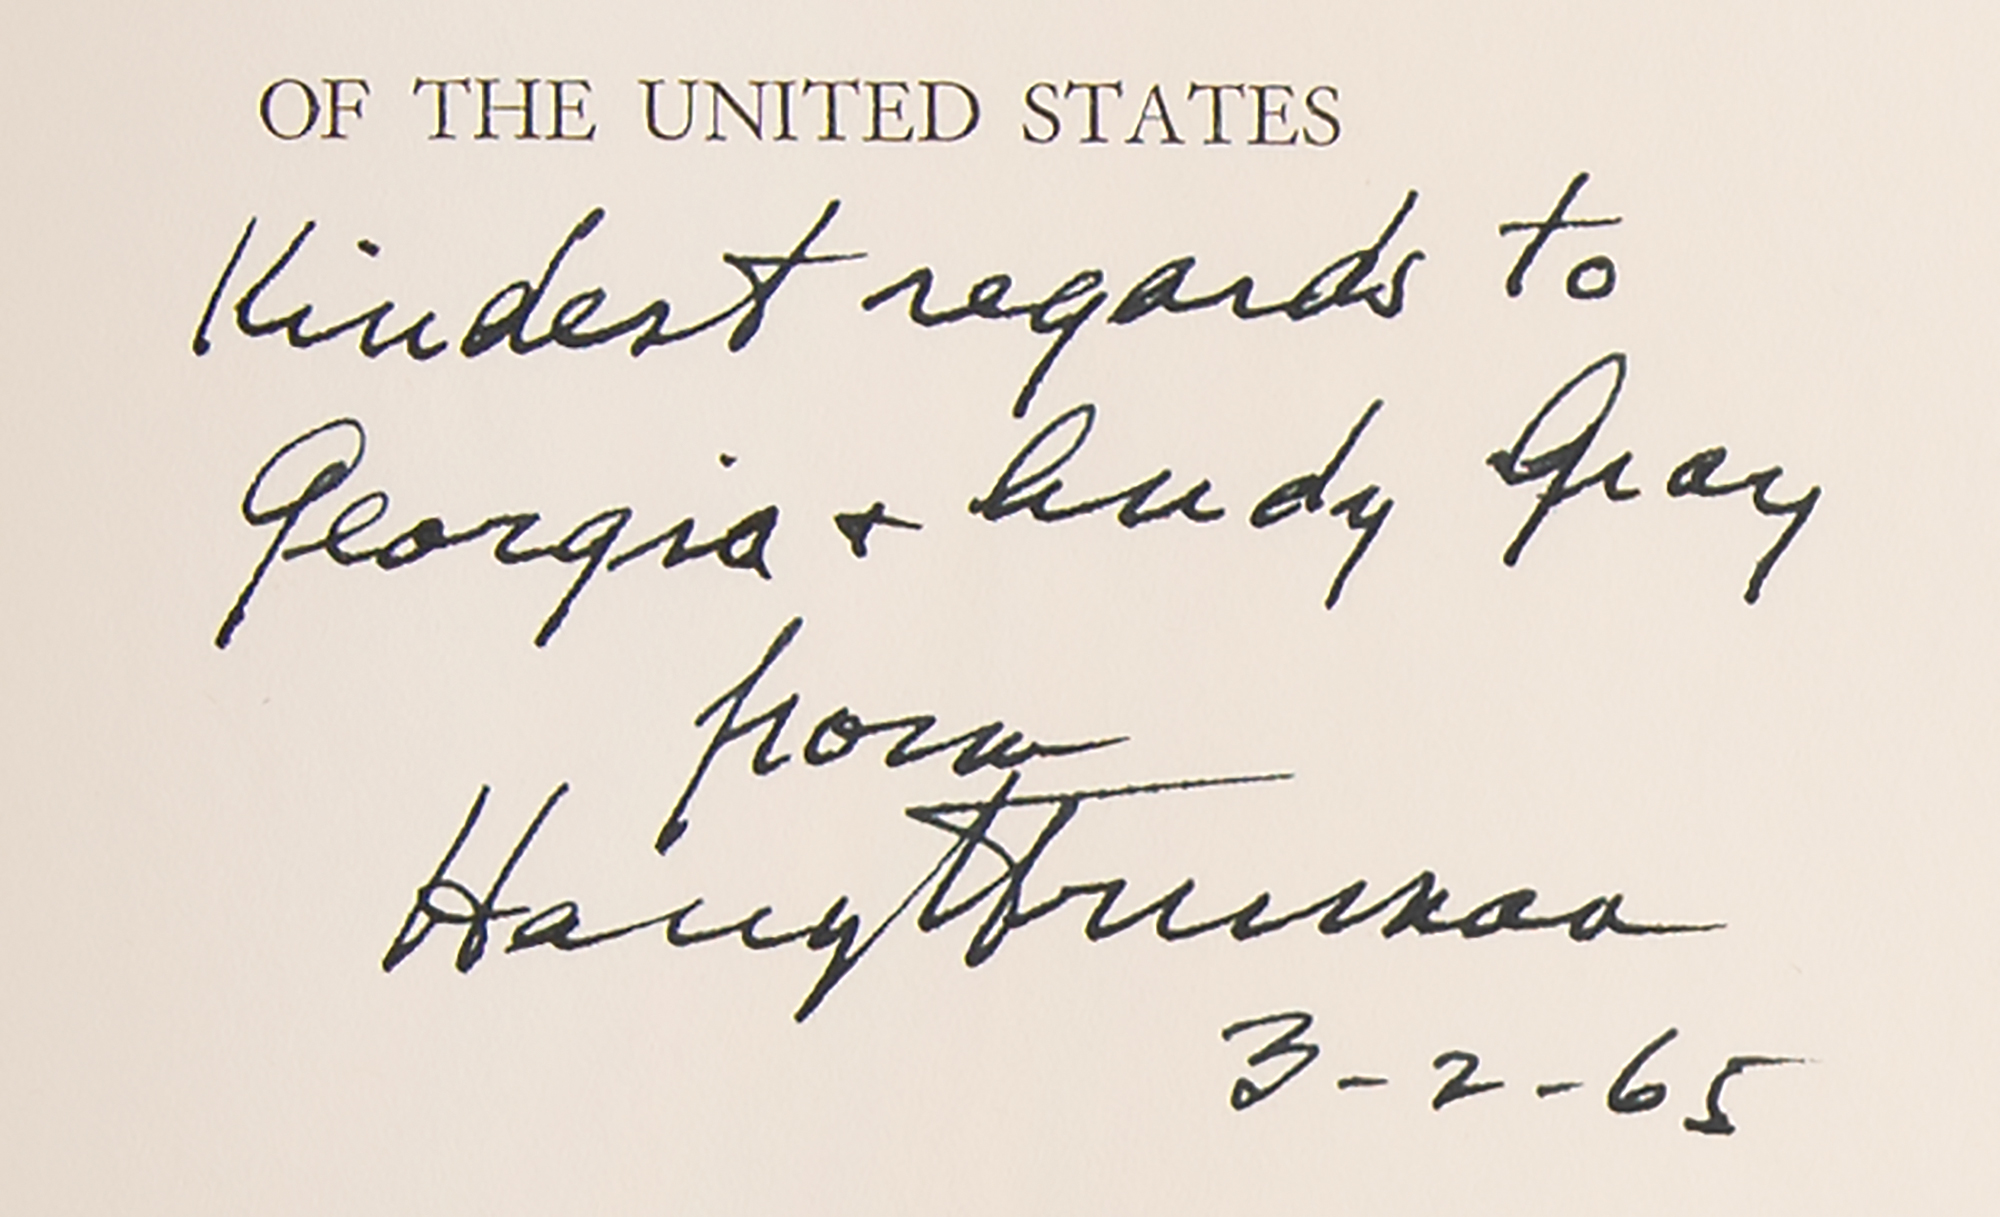 OF THE UNITED STATES
Kindest regards to
Georgia + Andy Gray
from
Harry Truman
3-2-65